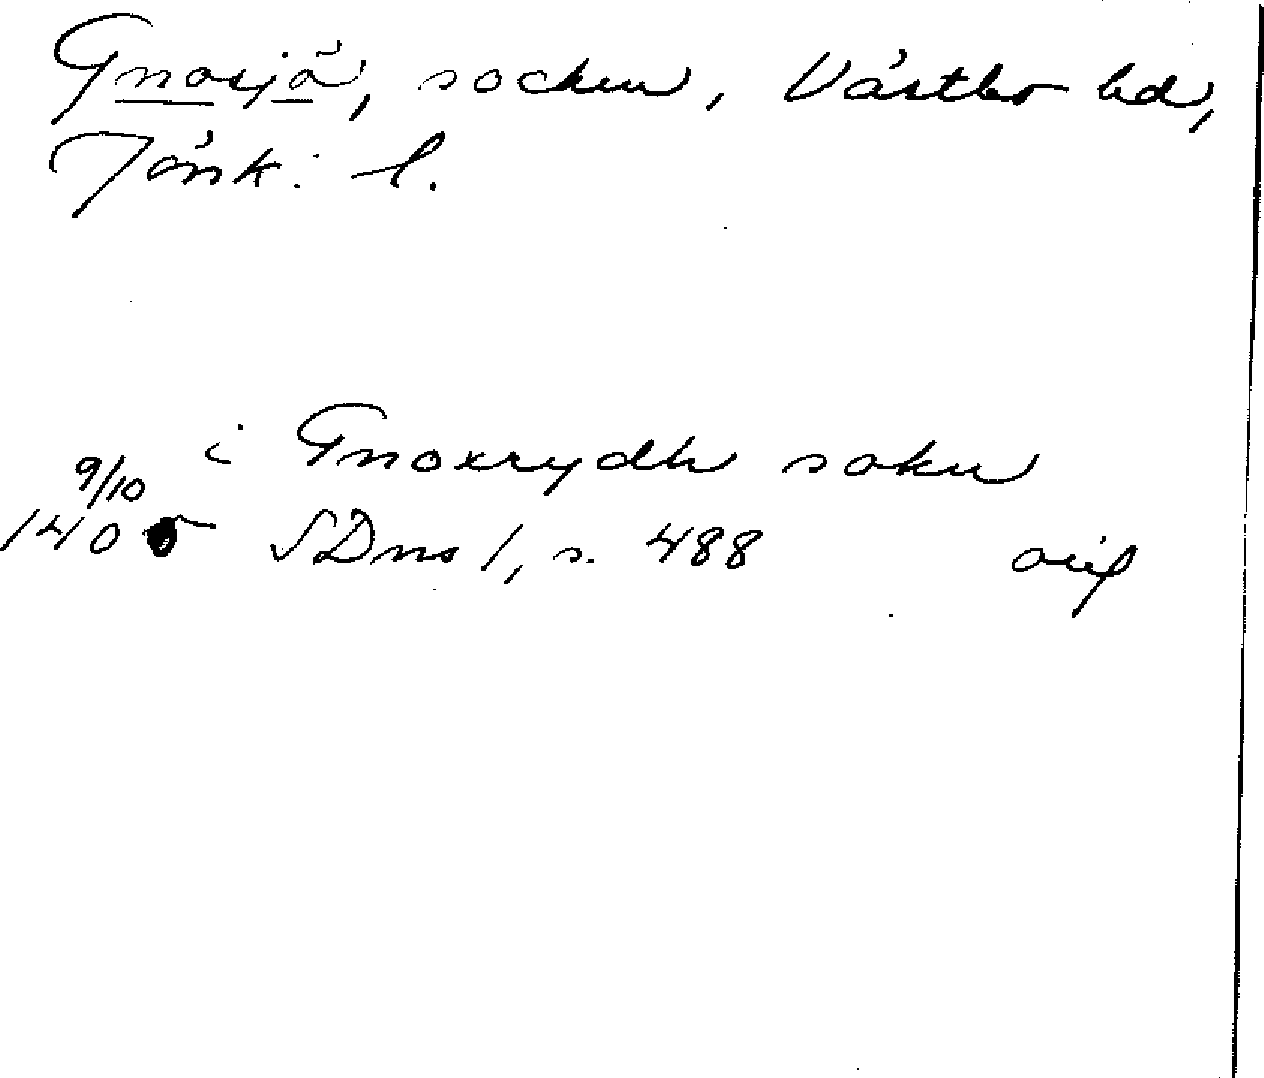 Gnosjö, socken, Västbo hd,
Jönk. l.
i Gnoxrydh sokn
9/10
1405 SDns 1, s. 488 orig